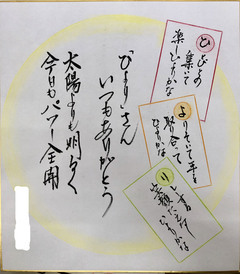 ひ
びよりの
集いて
楽しひよりかな
よ
りそいて手を
取合って
ひよりかな
り
笑顔に
ひよりかな
ひよりさん
いつもありがとう
太陽よりも明るく
今日もパワー全開